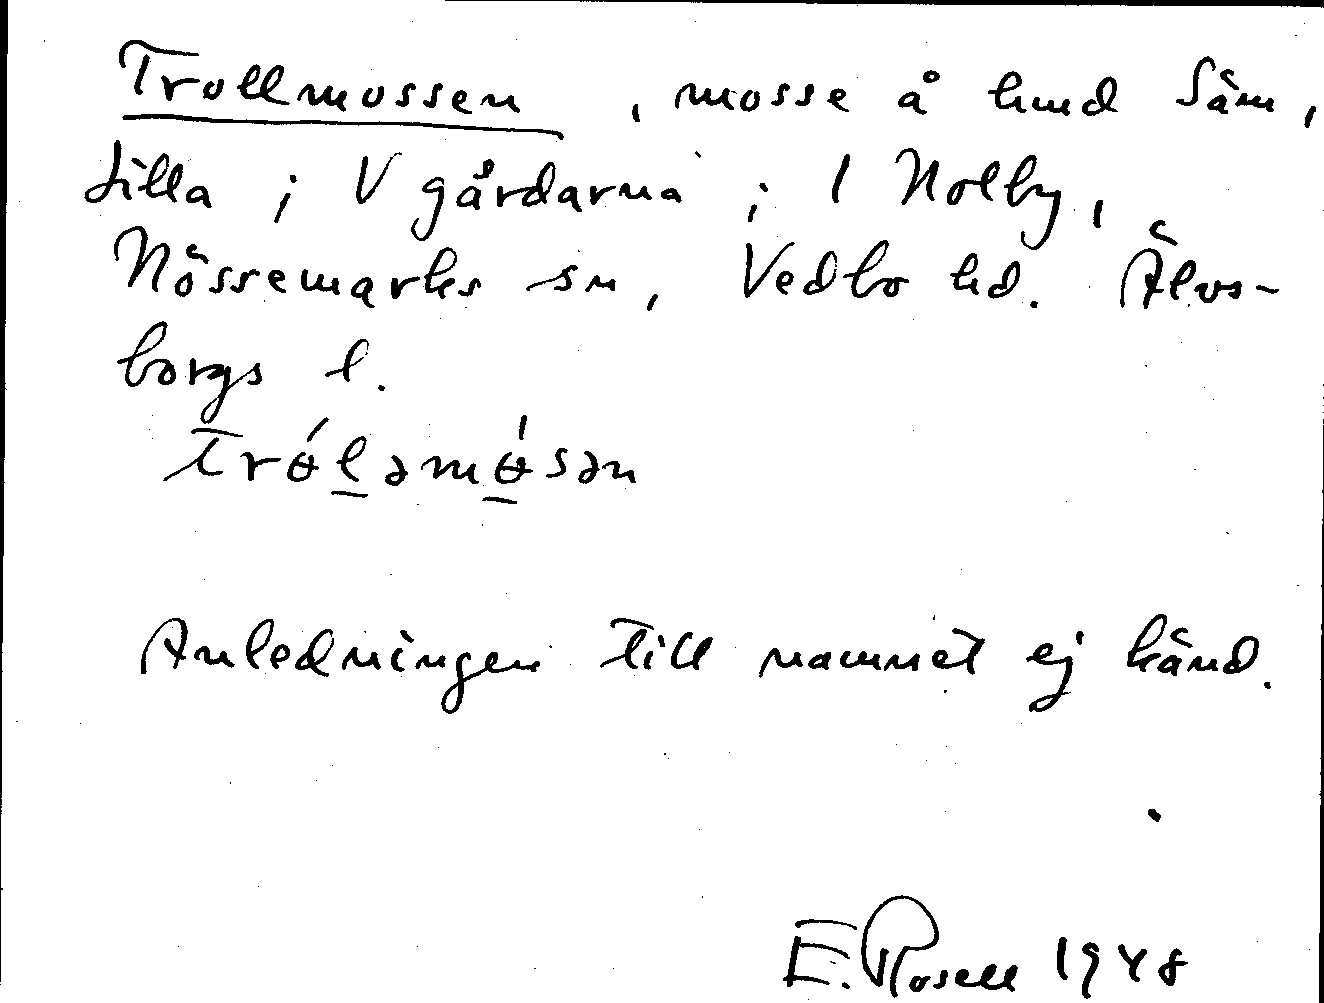 Trollmossen, mosse å hmd Säm,
Lilla; V gårdarna; 1 Nolby,
Nössemarks sn, Vedbo hd. Älvs-
borgs l.
Trɵ́lǝmɵ́sǝn
Anledningen till namnet ej känd.
E. Rosell 1948